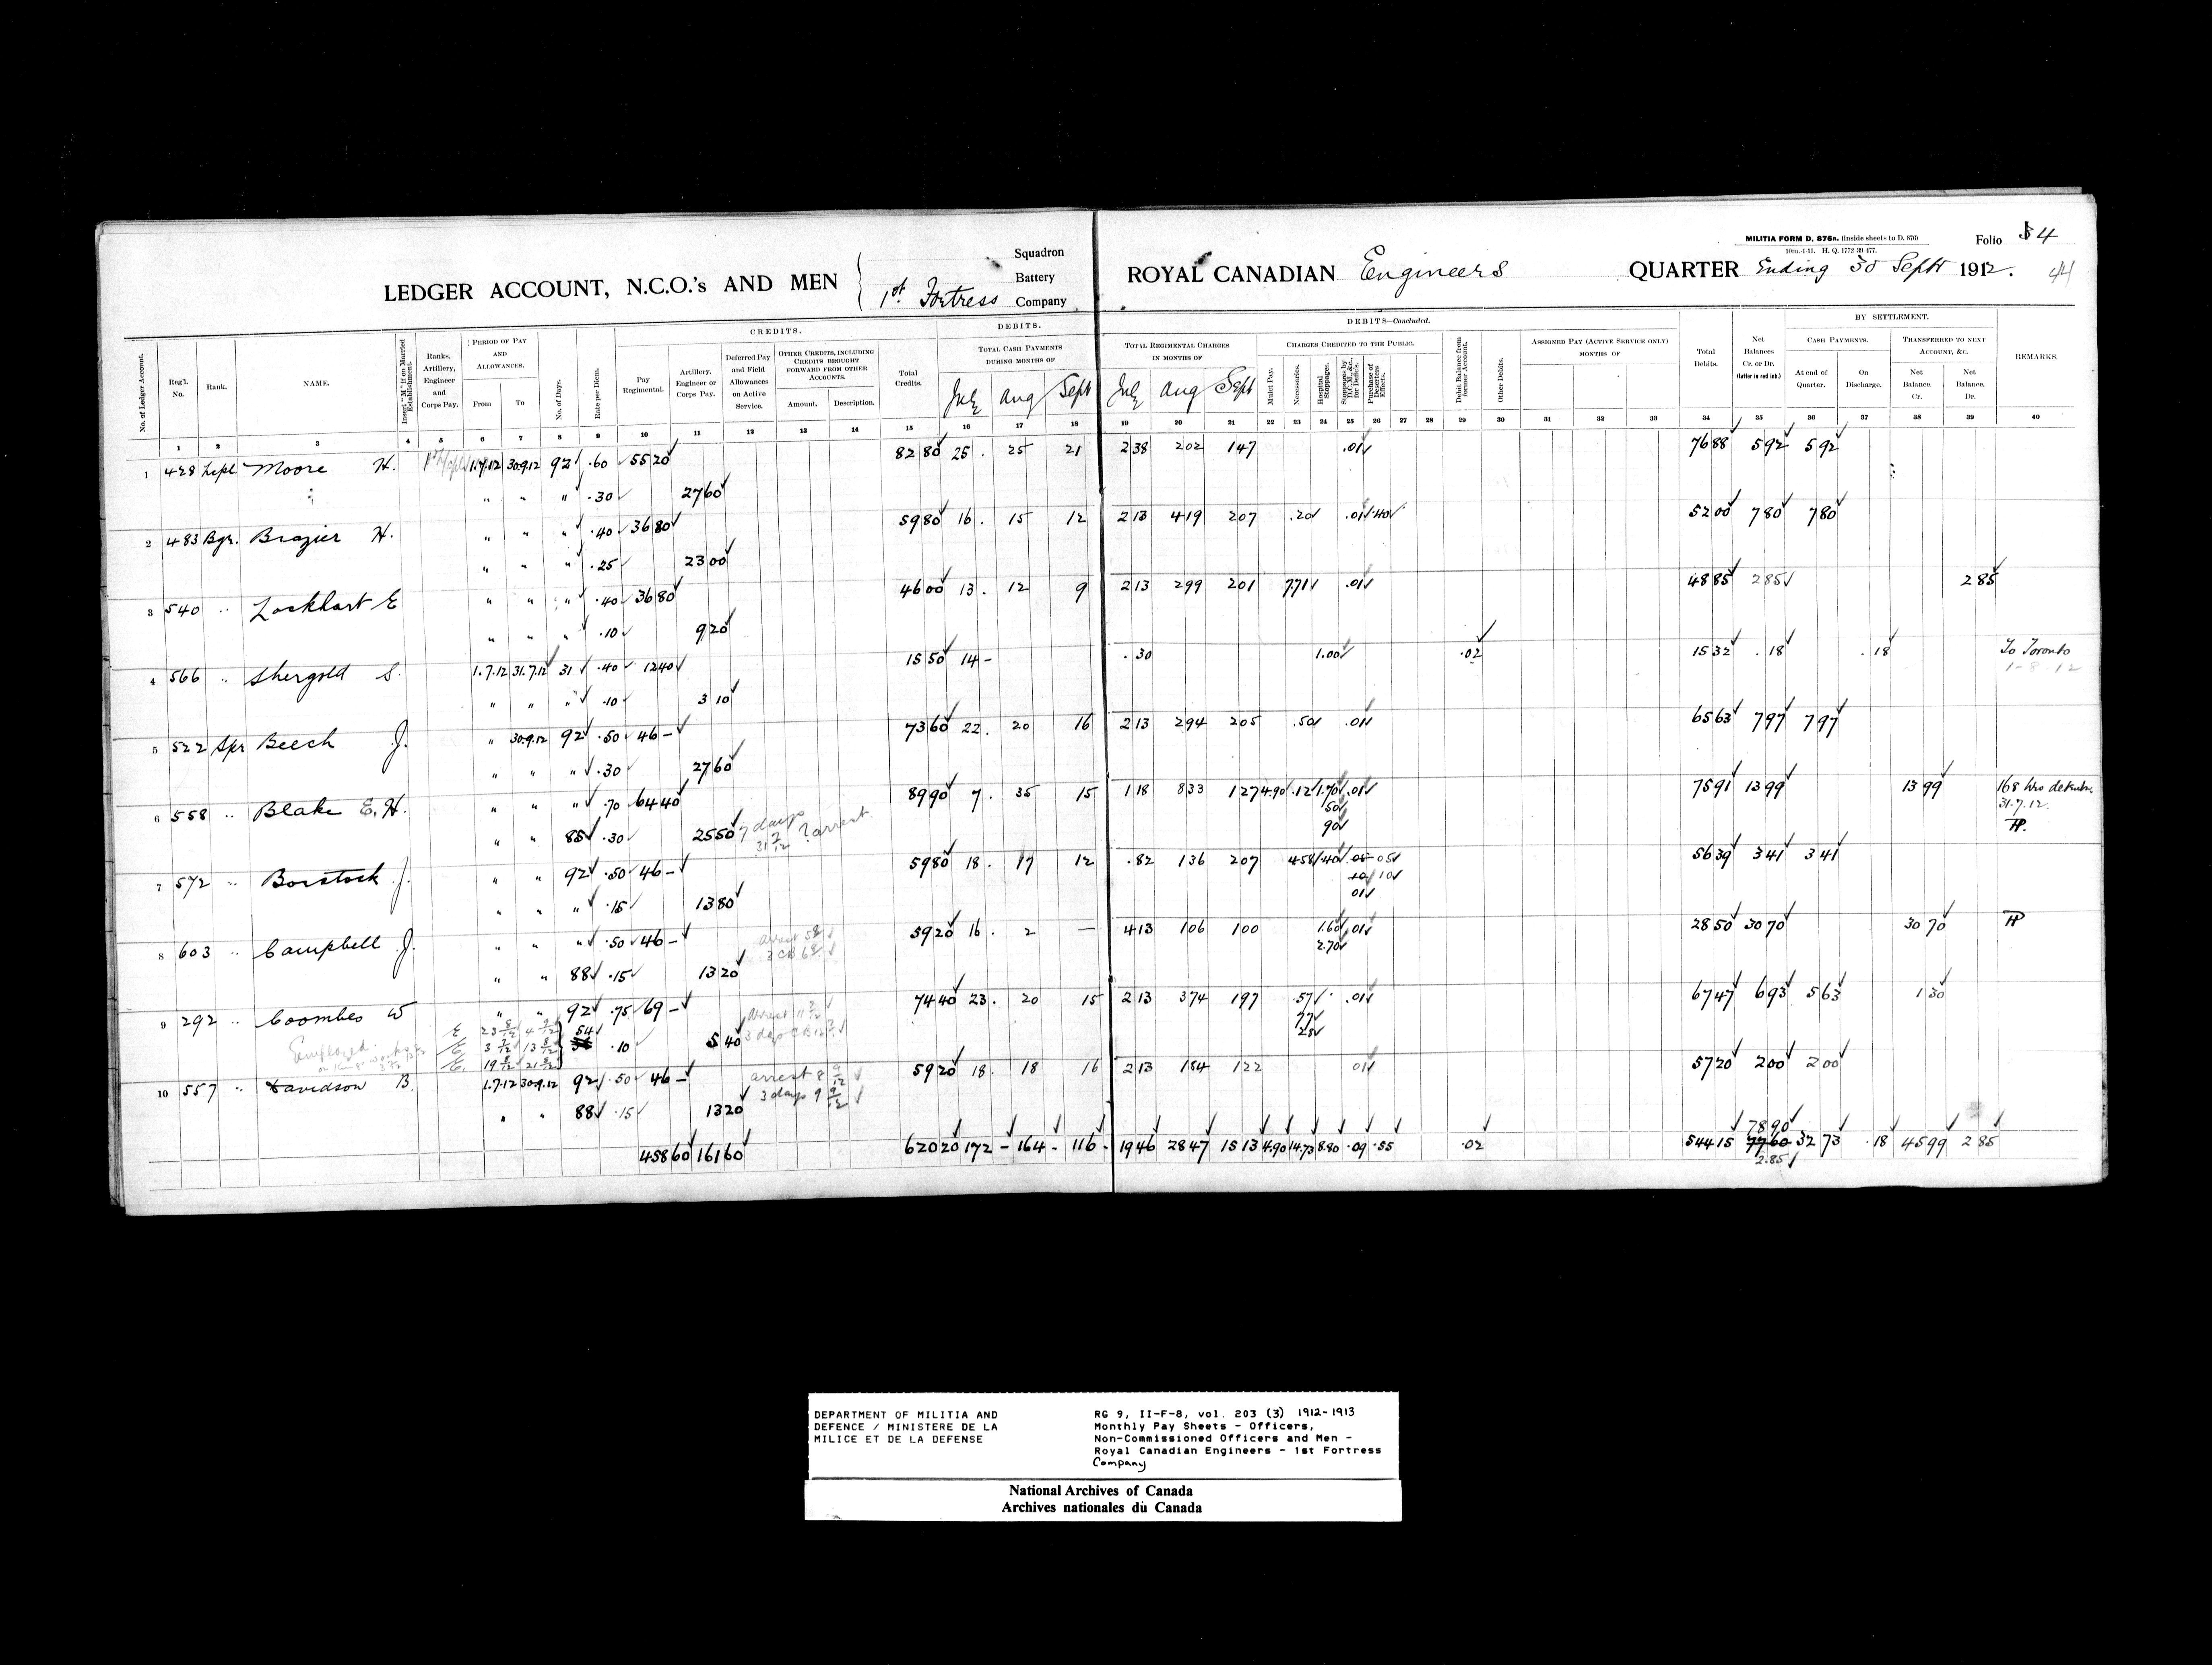 MILITIA FORM D. 876a. (inside sheets to D. 876)
10m.-1-11. H. Q. 1772-39-477.
Folio 34
44
LEDGER ACCOUNT, N.C.O.'s AND MEN
Squadron
Battery
1st. Fortress Company
ROYAL CANADIAN Engineers QUARTER Ending 30 Septr 1912.
CREDITS. DEBITS. DEBITS—Concluded. BY SETTLEMENT.
No. of Ledger Account.
Reg'l. No.
Rank.
NAME.
Insert "M" if on Married Establishment.
Ranks, Artillery, Engineer and Corps Pay.
PERIOD OF PAY AND ALLOWANCES.
From To
No. of Days.
Rate per Diem.
Pay Regimental.
Artillery, Engineer or Corps Pay.
Deferred Pay and Field Allowances on Active Service.
OTHER CREDITS, INCLUDING CREDITS BROUGHT FORWARD FROM OTHER ACCOUNTS.
Amount. Description.
Total Credits.
TOTAL CASH PAYMENTS DURING MONTHS OF
July Aug Sept
TOTAL REGIMENTAL CHARGES IN MONTHS OF
July Aug Sept
CHARGES CREDITED TO THE PUBLIC.
Mulct Pay.
Necessaries.
Hospital Stoppages.
Stoppages by D.C.M., &c., for Defic's.
Purchase of Deserters Effects.
Debit Balance from former Account.
Other Debits.
ASSIGNED PAY (ACTIVE SERVICE ONLY) MONTHS OF
Total Debits.
Net Balances Cr. or Dr. (latter in red ink.)
CASH PAYMENTS.
At end of Quarter. On Discharge.
TRANSFERRED TO NEXT ACCOUNT, &C.
Net Balance. Cr. Net Balance. Dr.
REMARKS.
1 2 3 4 5 6 7 8 9 10 11 12 13 14 15 16 17 18 19 20 21 22 23 24 25 26 27 28 29 30 31 32 33 34 35 36 37 38 39 40
1 428 Moore H. 1.7.12 30.9.12 92 .60 55 20 82 80 25. 25 21 2 38 2 02 1 47 .01 76 88 5 92 5 92
" " " .30 27 60
2 483 Bgr. Brazier H. " " " .40 36 80 59 80 16. 15 12 2 13 4 19 2 07 .20 .01 .40 52 00 7 80 7 80
" " " .25 23 00
3 540 " Lockhart E " " " .40 36 80 46 00 13. 12 9 2 13 2 99 2 01 7.71 .01 48 85 2 85 2 85
" " " .10 9 20
4 566 " Shergold S. 1.7.12 31.7.12 31 .40 12 40 15 50 14 - .30 1.00 .02 15 32 .18 .18 To Toronto
1-8-12
" " " .10 3 10
5 522 Spr Beech J. " 30.9.12 92 .50 46 - 73 60 22. 20 16 2 13 2 94 2 05 .50 .01 65 63 7 97 7 97
" " " .30 27 60
6 558 " Blake E. H. " " " .70 64 40 89 90 7. 35 15 1 18 8 33 1 27 4.90 .12 1.70 .01 75 91 13 99 13 99 168 hrs detentn.
31.7.12.
50
90
" " 85 .30 25 50 7 days 31 7/12 ? arrest
7 572 " Borstock J. " " 92 .50 46 - 59 80 18. 17 12 .82 1 36 2 07 4.58 1.40 .05 05 56 39 3 41 3 41
10 10
01
" " " .15 13 80
8 603 " Campbell J. " " " .50 46 - 59 20 16. 2 — 4 13 1 06 1 00 1.60 .01 28 50 30 70 30 70
2.70
" " 88 .15 13 20
9 292 " Coombes W " " 92 .75 69 - 74 40 23. 20 15 2 13 3 74 1 97 .57 .01 67 47 6 93 5 63 1 30
77
28
Employed. 54 .10 5 40
10 557 " Davidson B. 1.7.12 30.9.12 92 .50 46 - arrest 8 9/12 59 20 18. 18 16 2 13 1 84 1 22 01 57 20 2 00 2 00
3 days 9 9/12
" " 88 .15 13 20
78 90
458 60 161 60 620 20 172 - 164 - 116 - 19 46 28 47 15 13 4.90 14.73 8.80 .09 .55 .02 544 15 77 60 32 73 .18 45 99 2 85
2.85
DEPARTMENT OF MILITIA AND
DEFENCE / MINISTERE DE LA
MILICE ET DE LA DEFENSE
RG 9, II-F-8, vol. 203 (3) 1912-1913
Monthly Pay Sheets - Officers,
Non-Commissioned Officers and Men -
Royal Canadian Engineers - 1st Fortress
Company
National Archives of Canada
Archives nationales du Canada